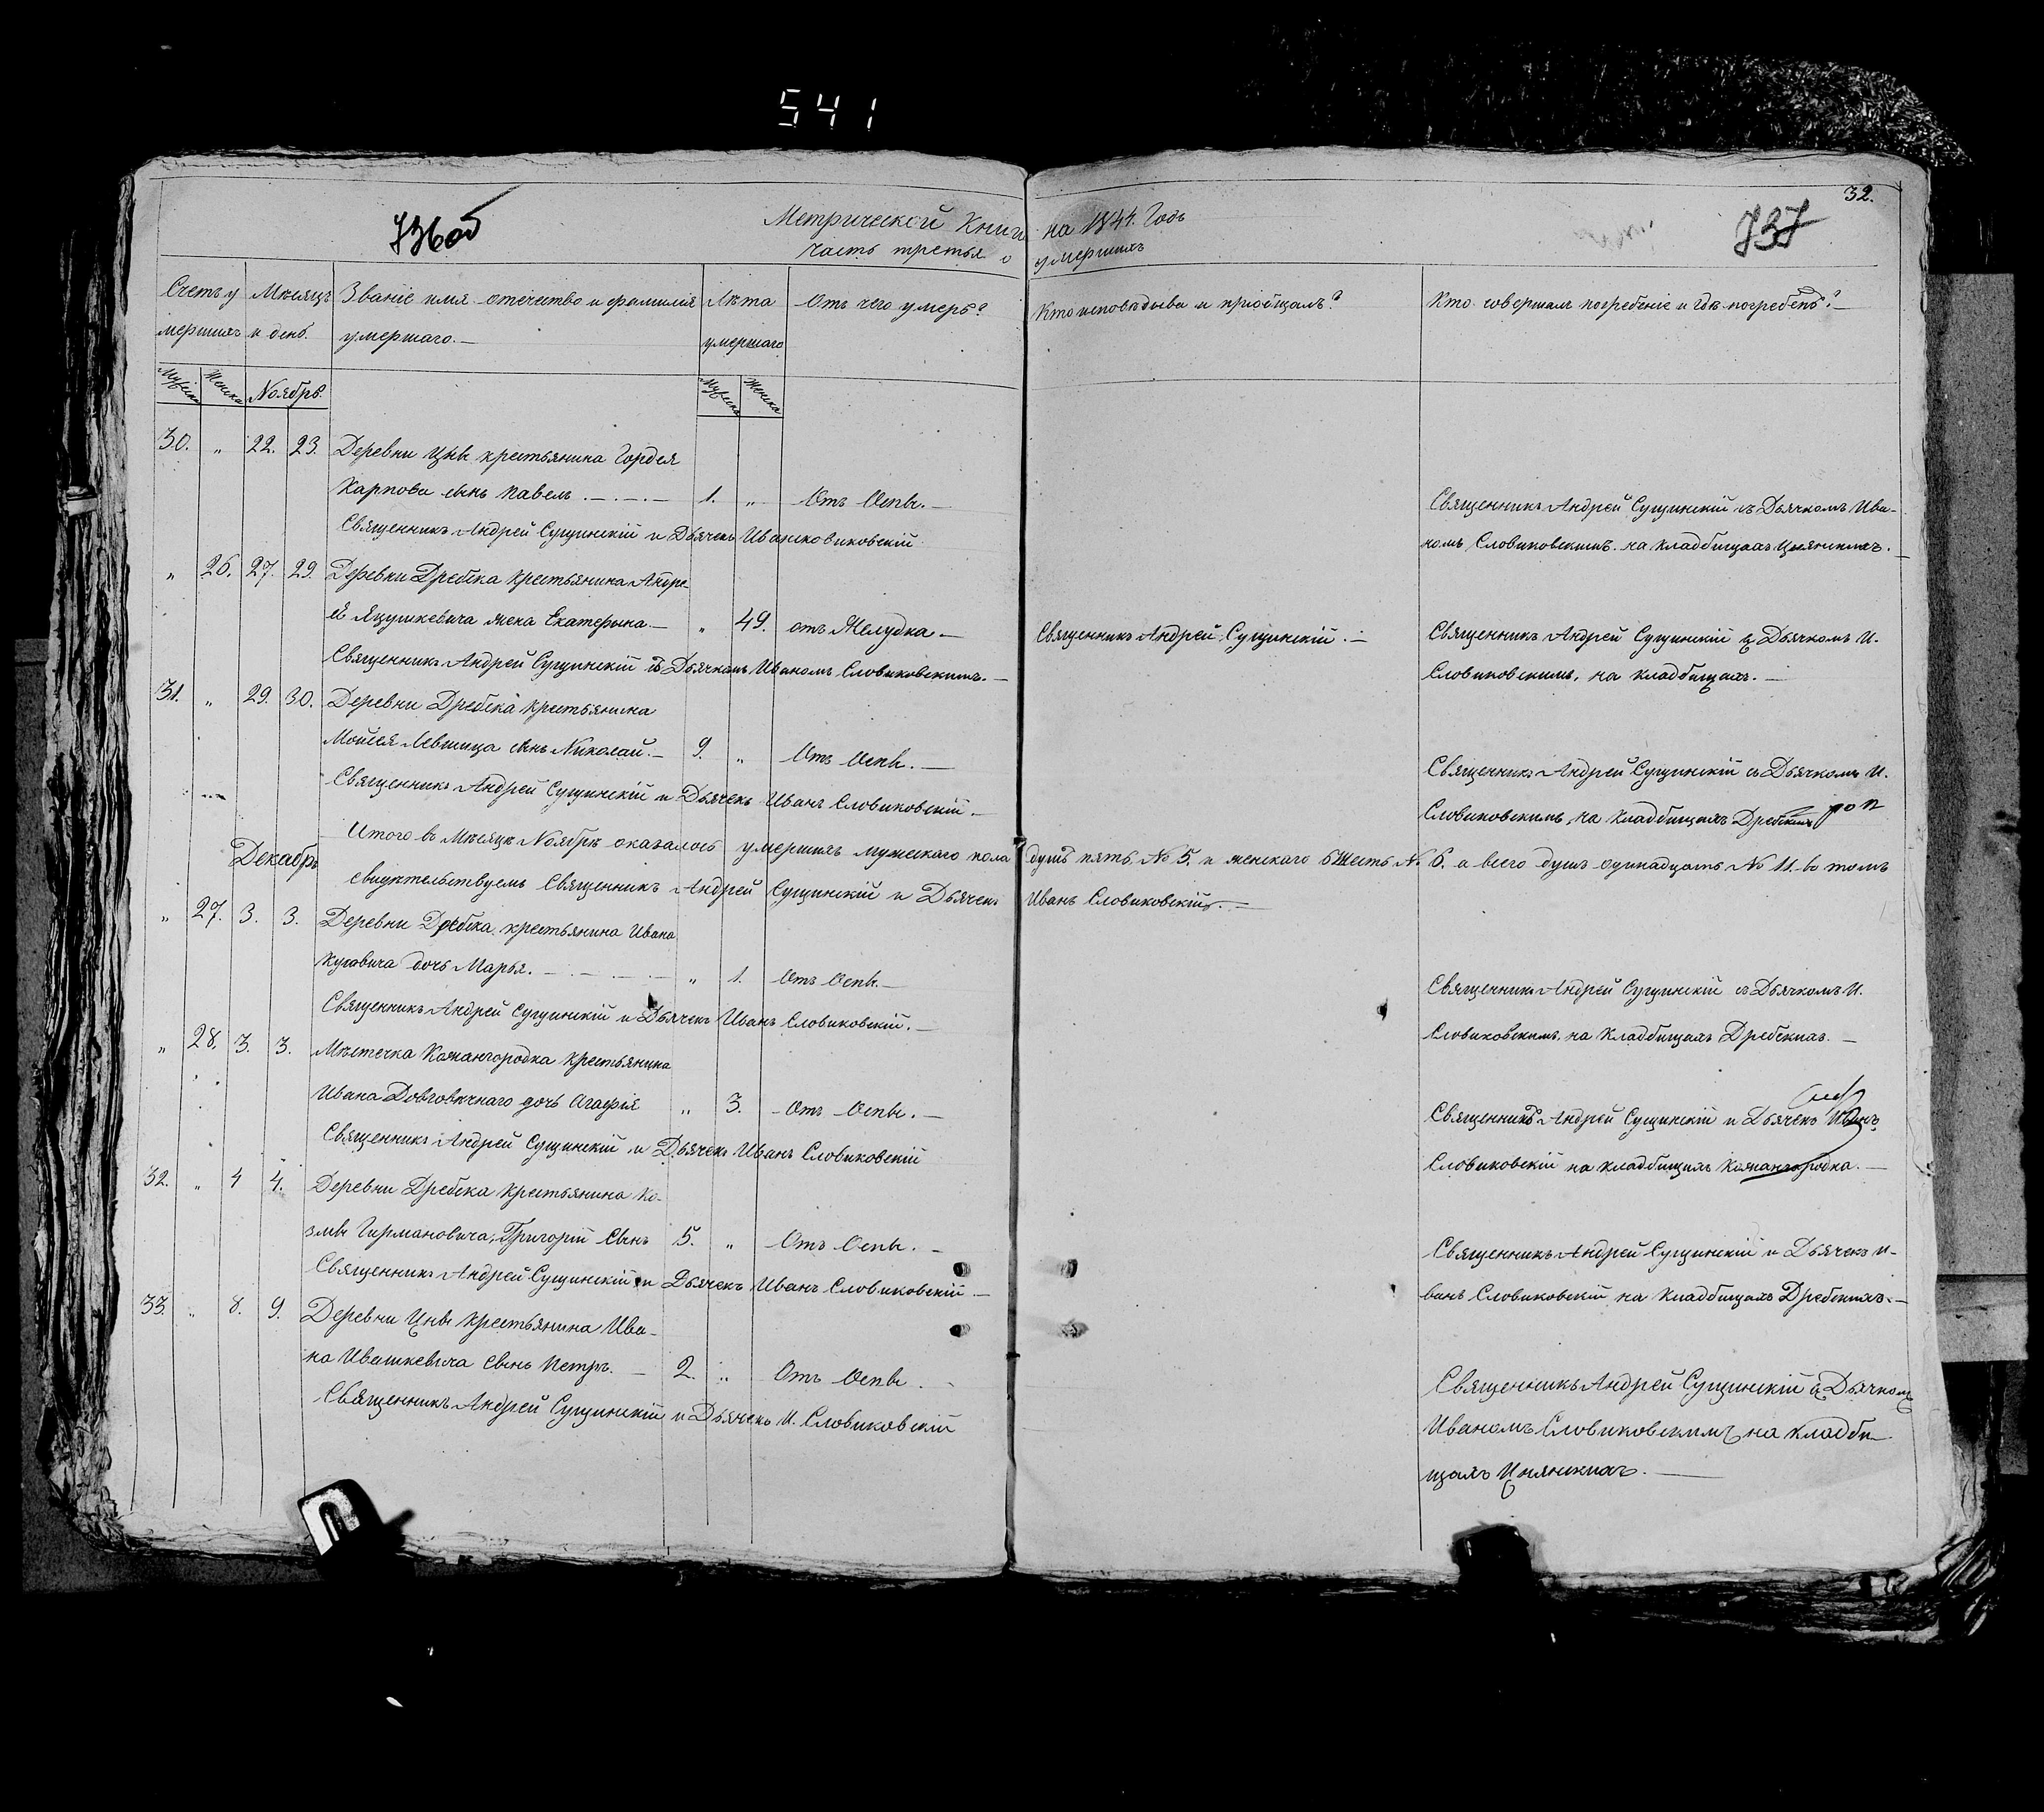 541
32.
736об
737
Метрической Книги на 1844. Годъ
Часть третья о умершихъ
Счетъ у Мѣсяцъ Званіе имя отечество и фамилія Лѣта Отъ чего умеръ? Кто исповѣдыва и пріобщалъ? Кто совершалъ погребеніе и гдѣ погребенъ?
мершихъ и день. умершаго. умершаго
Мужеска Женска Ноябрь. Мужеска Женска
30. „ 22. 23. Деревни Цны крестьянина Гордея
Карпова сынъ Павелъ 1. „ Отъ Оспы. Священникъ Андрей Сущинскій съ Дьячкомъ Ива-
Священникъ Андрей Сущинскій и Дьячекъ Иванъ номъ Словиковскимъ на Кладбищахъ Цнянскихъ.
„ 26. 27. 29. Деревни Дребска крестьянина Андре
ея Яцушкевича жена Екатерына „ 49. отъ Желудка Священникъ Андрей Сущинскій. Священникъ Андрей Сущинскій съ Дьячкомъ И.
Священникъ Андрей Сущинскій съ Дьячкомъ Иваномъ Словиковскимъ. Словиковскимъ, на кладбищахъ.
31. „ 29. 30. Деревни Дребска крестьянина
Мойсея Левшица сынъ Николай. 9. „ Отъ Оспы. Священникъ Андрей Сущинскій съ Дьячкомъ И.
Священникъ Андрей Сущинскій и Дьячекъ Иванъ Словиковскій. Словиковскимъ, на Кладбищахъ Дребскихъ
Итого въ Мѣсяцѣ Ноябрѣ оказалось умершихъ мужескаго пола душъ пять № 5. и женскаго Шесть № 6. а всего душъ одинадцать № 11. въ томъ
Декабрь
свидѣтельствуемъ Священникъ Андрей Сущинскій и Дьячекъ Иванъ Словиковскій.
„ 27. 3. 3. Деревни Дребска крестьянина Ивана
дочь Марья. „ 1. Отъ Оспы. Священникъ Андрей Сущинскій съ Дьячкомъ И.
Священникъ Андрей Сущинскій и Дьячекъ Иванъ Словиковскій. Словиковскимъ, на Кладбищахъ Дребскихъ.
„ 28. 3. 3. Мѣстечка Кожангородка крестьянина
Ивана Довговѣчнаго дочь Агафія „ 3. Отъ Оспы. Священникъ Андрей Сущинскій и Дьячекъ Иванъ
Священникъ Андрей Сущинскій и Дьячекъ Иванъ Словиковскій Словиковскій на кладбищахъ Кожангородка.
32. „ 4 4. Деревни Дребска крестьянина Ко-
змы Гирмановича, Григорій сынъ 5. „ Отъ Оспы. Священникъ Андрей Сущинскій и Дьячекъ И-
Священникъ Андрей Сущинскій и Дьячекъ Иванъ Словиковскій ванъ Словиковскій на Кладбищахъ Дребскихъ.
33. „ 8. 9. Деревни Цны Крестьянина Ива-
на Ивашкевича сынъ Петръ. 2. „ Отъ Оспы. Священникъ Андрей Сущинскій съ Дьячкомъ
Священникъ Андрей Сущинскій и Дьячекъ И. Словиковскій Иваномъ Словиковскимъ на кладби-
щахъ Цнянскихъ.